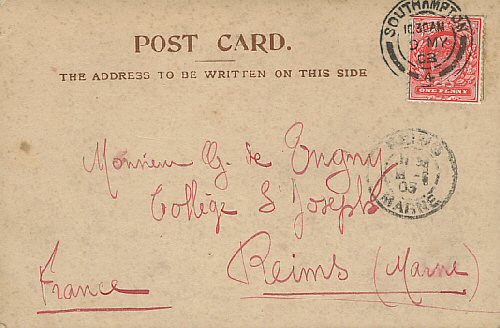 POST CARD.
THE ADDRESS TO BE WRITTEN ON THIS SIDE
SOUTHAMPTON
10.30 AM
MY
03
4
ONE PENNY
REIMS
03
MARNE
Monsieur G. de Eugny
Collège S Joseph
Reims (Marne)
France